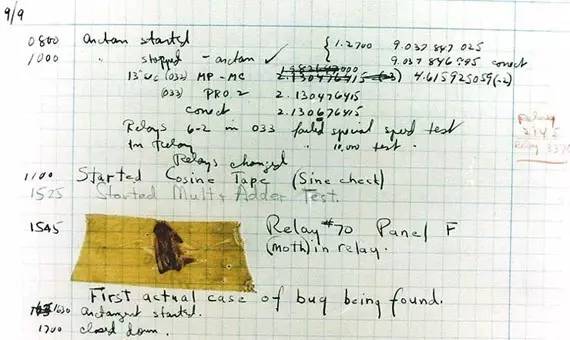 9/9
0800 arctan started
1000 " stopped - arctan ✓ { 1.2700 9.037 847 025
9.037 846 995 correct
13" uc (032) MP - MC 4.615925059 (-2)
(033) PRO 2 2.130476415
correct 2.130676415
Relays 6-2 in 033 failed special speed test
In Relay " 10,000 test .
Relay
2145
Relay 3370
Relays changed
1100 Started Cosine Tape (Sine check)
1525 Started Mult + Adder Test.
1545 Relay #70 Panel F
(moth) in relay.
First actual case of bug being found.
1630 arctangent started.
1700 closed down.